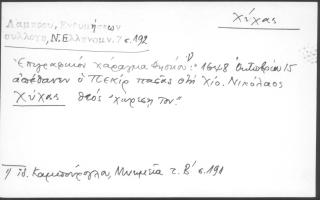 Χύχας
Λάμπρου, Ενθυμήσεων
συλλογή, Ν. Ελληνομν. 7 σ. 192
"Επιγραφικόν χάραγμα Θησείου" 1): "1648 Οκτωβρίου 15
απέθανεν ο Πεκίρ πασάς στη Χίο. Νικόλαος
Χύχας θεός "χωρέση τον".
1) Ιδ. Καμπούρογλου, Μνημεία τ. Β' σ. 191